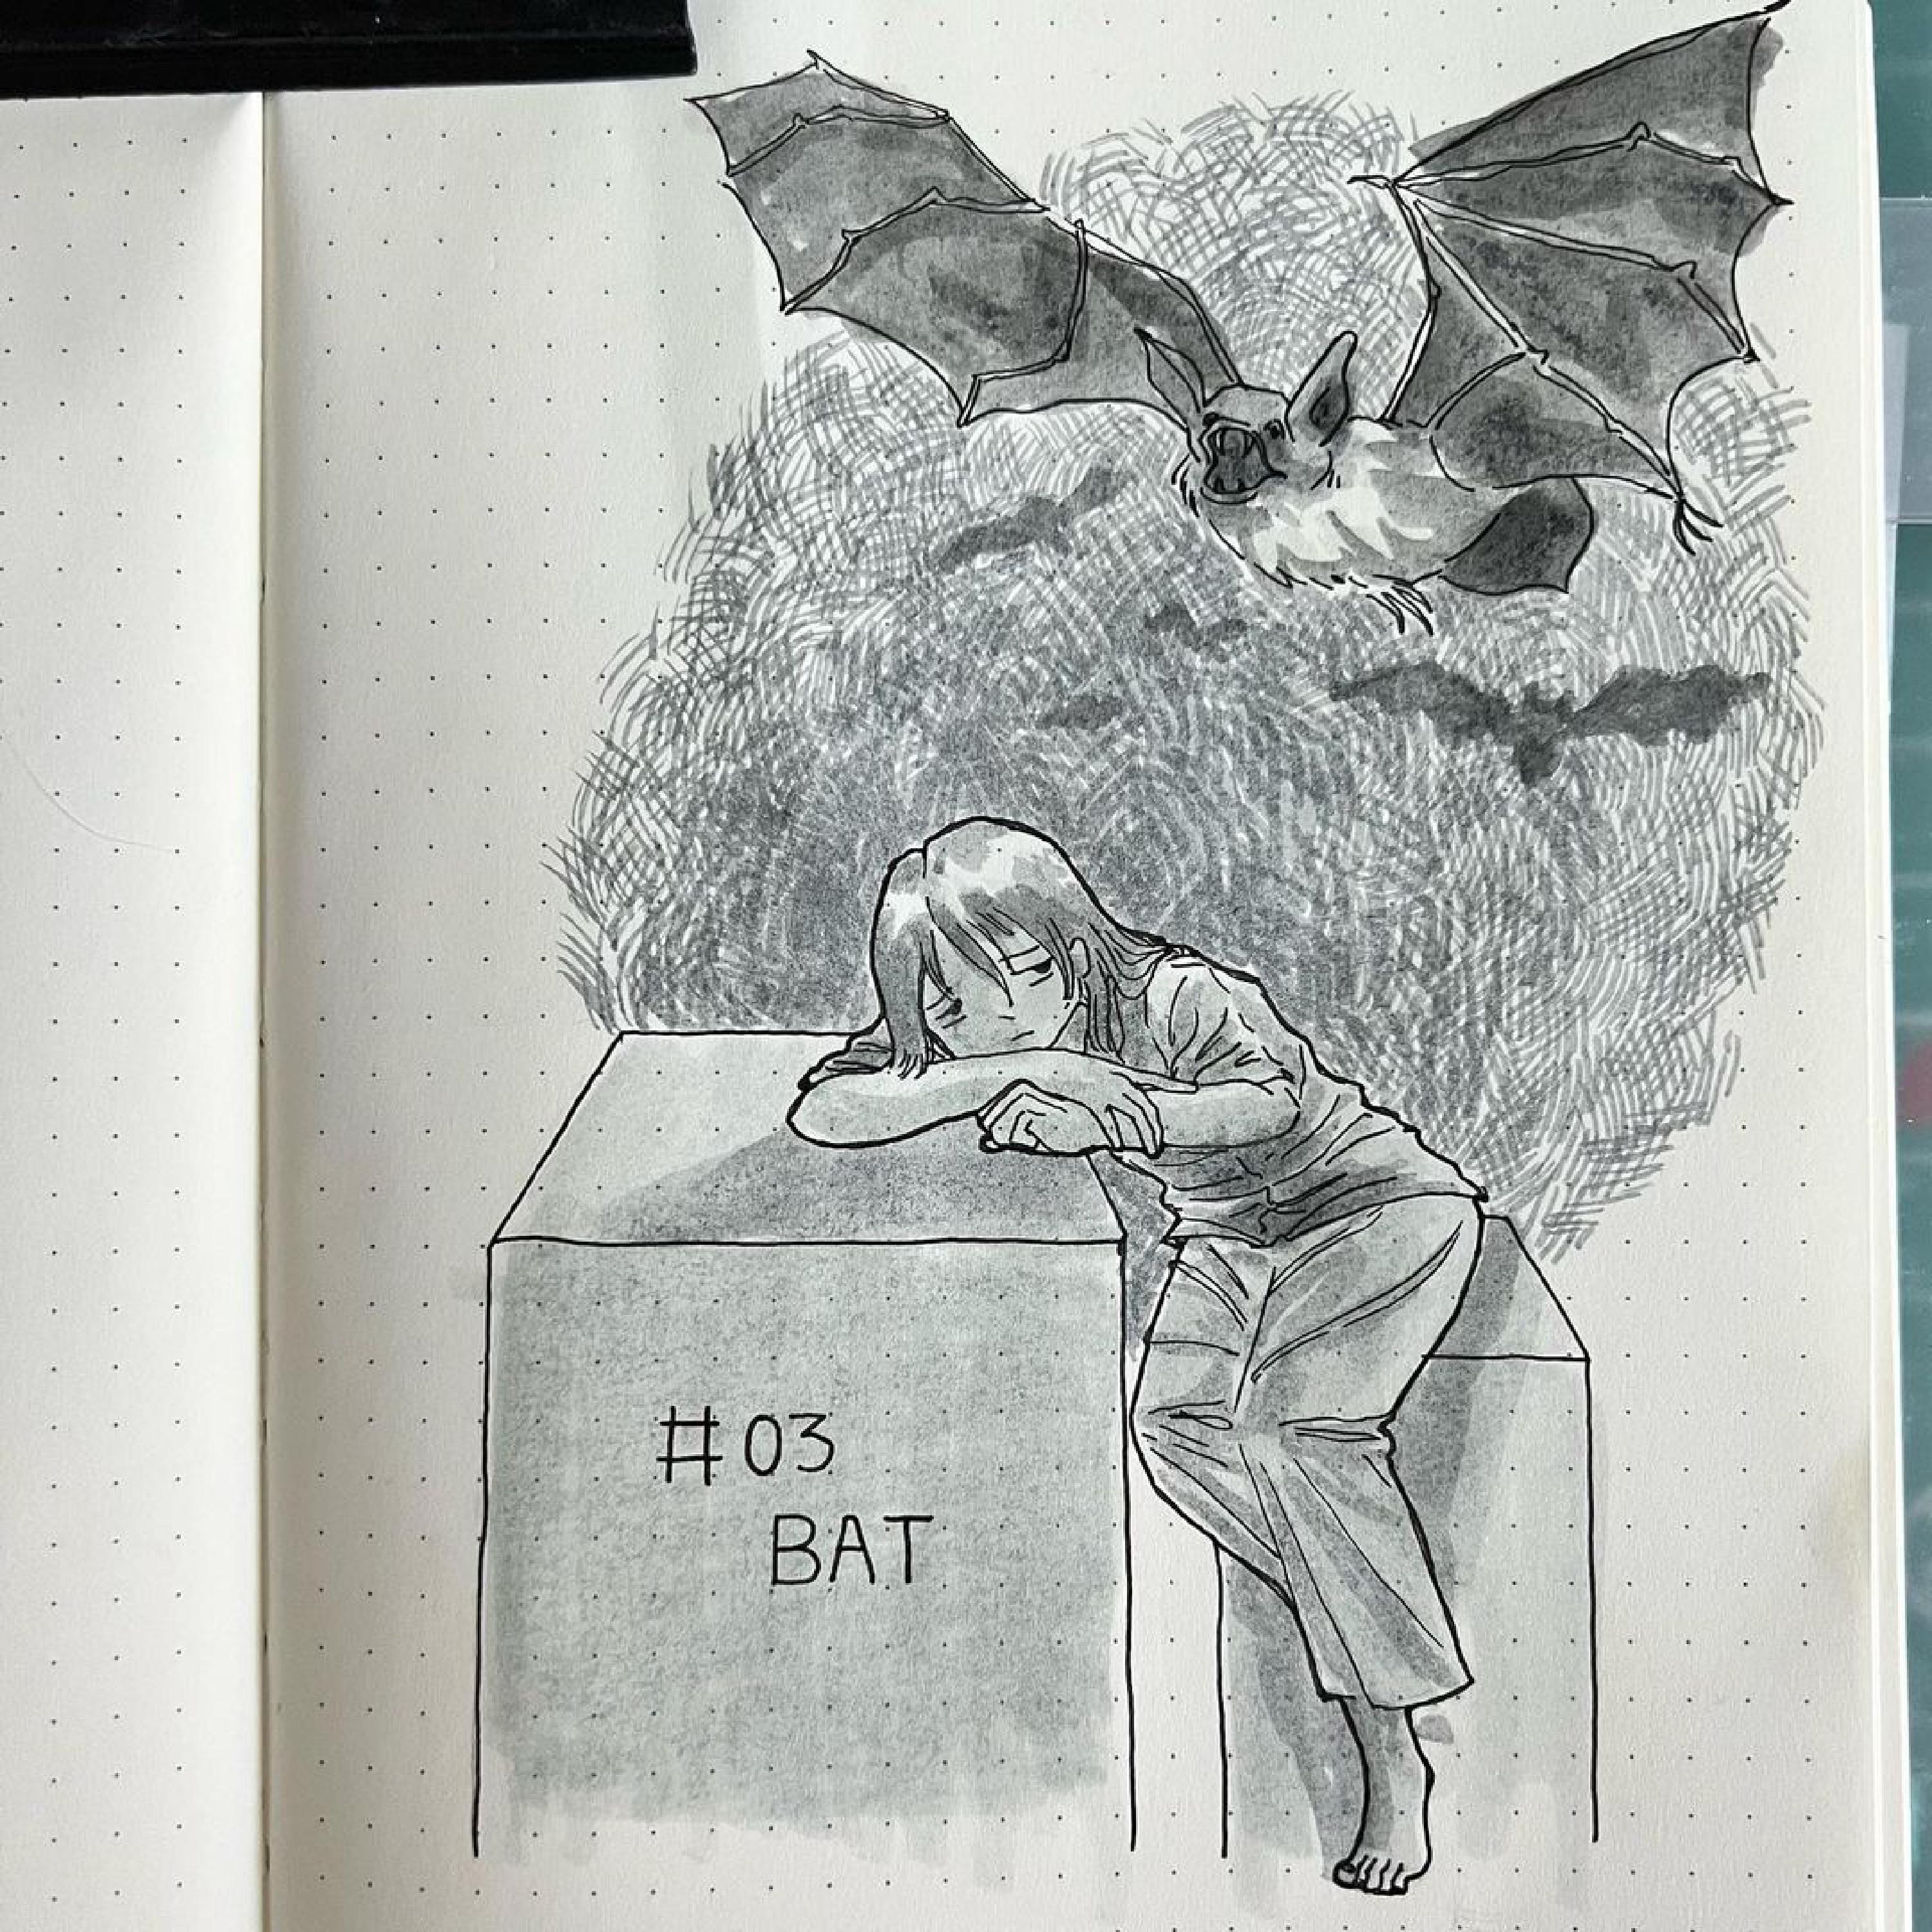 #03
BAT